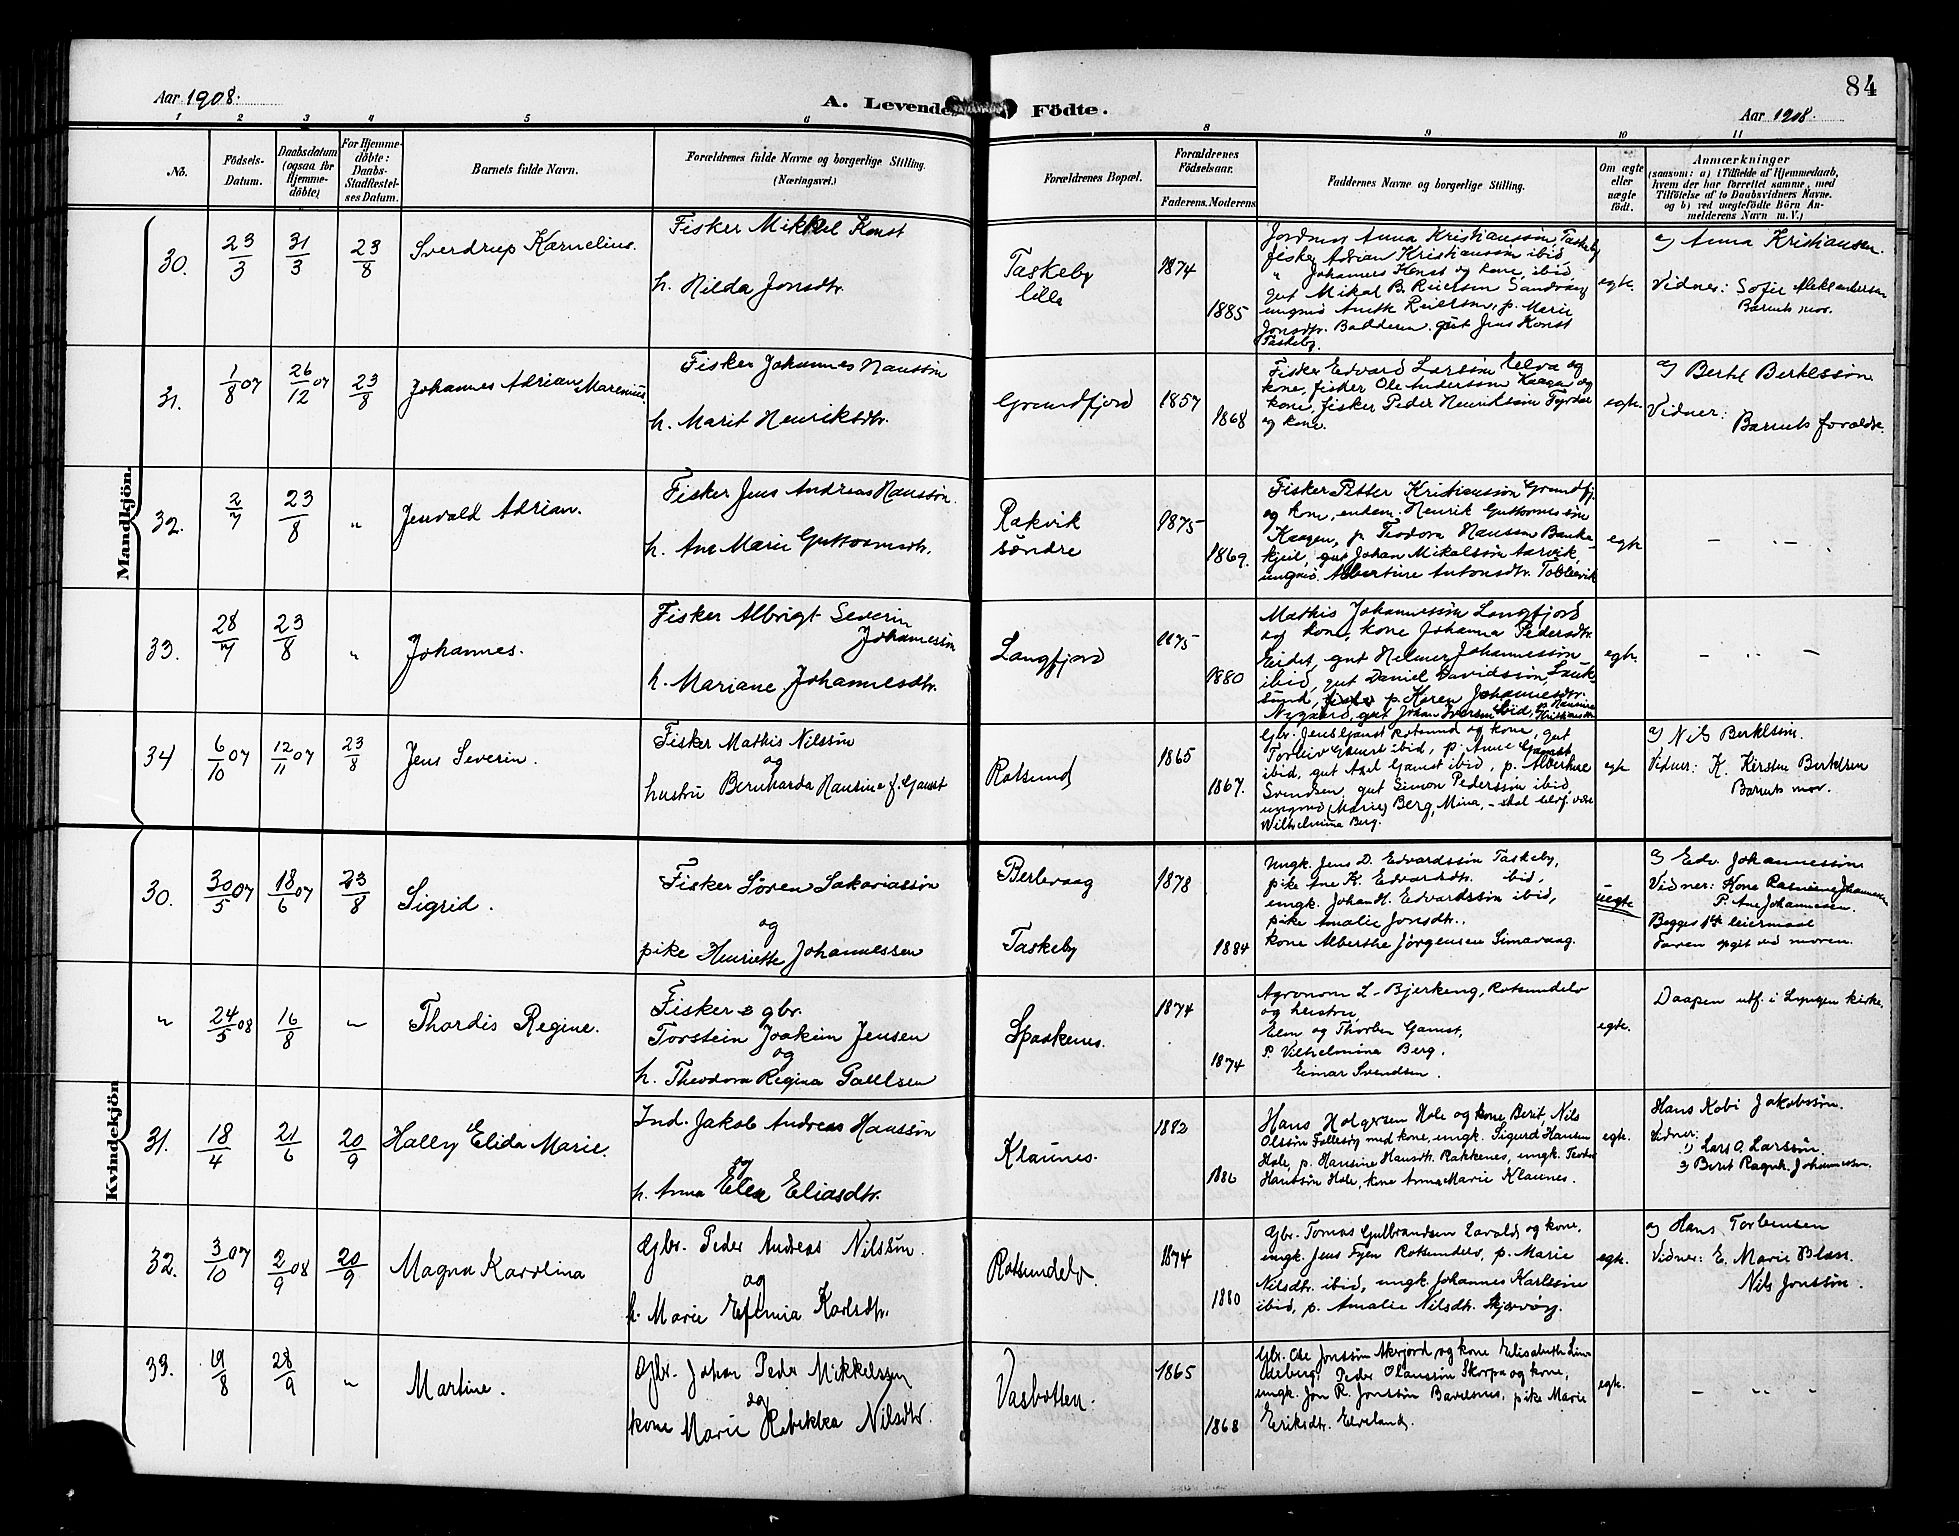 84
Aar 1908.
A. Levende Födte.
Aar 1908.
1 2 3 4 5 6 8 9 10 11
No.
Födsels-Datum.
Daabsdatum (ogsaa for Hjemmedöbte)
For Hjemmedøbte: Daabs-Stadfæstelses Datum.
Barnets fulde Navn.
Forældrenes fulde Navne og borgerlige Stilling.
(Næringsvei.)
Forældrenes Bopæl.
Forældrenes Födselsaar.
Faderens. Moderens
Faddernes Navne og borgerlige Stilling.
Om ægte eller uægte födt.
Anmærkninger
(saasom: a) i Tilfælde af Hjemmedaab,
hvem der har forrettet samme, med
Tilföielse af to Daabsvidners Navne.
og b) ved uægtefödte Börn An-
melderens Navn m. V.)
Mandkjön.
30. 23/3 31/3 23/8 Sverdrup Kornelius.
Fisker Mikkel Konst
h. Hilda Jonsdtr.
Taskeby
lille
1874
1885
Jordmor Anna Kristianssön Taskeby
fisker Adrian Kristianssön ibid,
" Johannes Konst og kone, ibid,
gut Mikal B. Reiersen Sandvåg
ungmø Anette Reiersen, p. Marie
Jonsdtr. Badderen. gut Jens Konst
Taskeby.
egte.
a) Anna Kristiansen.
Vidner: Sofie Aleksandersen
Barnets mor.
31. 1/8 07 26/12 07 23/8 Johannes Adrian Marenius
Fisker Johannes Hanssön
h. Marit Henriksdtr.
Grundfjord
1857
1868
Fisker Edvard Larssön Elva og
kone, fisker Ole Anderssön Kaagen og
kone, fisker Peder Henrikssön
og kone.
egte.
a) Bertel Bertelssön
Vidner:
Barnets forældre.
32. 2/7 23/8 " Jenvald Adrian.
Fisker Jens Andreas Hanssön.
h. Ane Marie Guttormsdtr.
Rakvik
söndre
1875
1869.
Fisker Petter Kristianssön Grundfj.
og kone, endem. Henrik Guttormssön
Kaagen, p. Teodora Hanssen Banke-
kjeil, gut Johan Mikalssön Aarvik,
ungmø. Albertine Antonsdtr. Toblervik
egte
– . . –
33. 28/7 23/8 " Johannes.
Fisker Albrigt Severin
Johannessön
h. Mariane Johannesdtr.
Langfjord
1875
1880
Mathis Johannessön Langfjord
og kone, kone Johanna Pedersdtr.
Eidet, gut Helmer Johannessön
ibid, gut Daniel Davidssön, Lauk-
sund, p. Karen Johannesdtr.
Nygaard, gut Johan Iversen ibid, p. Hansine Kristiansdtr
egte.
– . . –
34 6/10 07 12/11 07 23/8 Jens Severin.
Fisker Mathis Nilssön
og
hustru Bernharda Hansine f. Gamst
Rotsund
1865
1867.
Gbr. Jens Gamst Rotsund og kone, gut
Torleiv Gamst ibid, p. Anne Gamst
ibid, gut Axel Gamst ibid, p. Albertine
Svendsen, gut Simon Pederssön ibid,
ungmø (Marie) Berg, Mina, – skal være
Wilhelmina Berg.
egte
a) Nils Bertelssön.
Vidner: K. Kirstine Bertelsen
Barnets mor.
Kvindekjön
30. 30/5 07 18/6 07 23/8 Sigrid.
Fisker Sören Sakariassön
og
pike Henriette Johannessen
Berlevaag
Taskeby
1878
1884
Ungk. Jens D. Edvardssön Taskeby,
pike Ane K. Edvardsdtr. ibid,
ungk. Johan H. Edvardssön ibid,
pike Amalie Jonsdtr.,
kone Alberthe Jörgensen Simavaag.
uegte
a) Edv. Johannessön
Vidner: Kone Rasmine Johannessen
P. Ane Johannessen.
Begges 1ste leiermaal
Faren opgit ved moren.
" 24/5 08 16/8 " Thordis Regine.
Fisker & gbr.
Torstein Joakim Jensen
og
h. Theodora Regina Paulsen
Spaakenes.
1874
1874
Agronom L. Bjerkeng, Rotsundelv
og hustru,
Elen og Thorben Gamst,
P. Vilhelmina Berg.
Einar Svendsen.
egte.
Daapen utf. i Lyngen kirke.
31. 18/4 21/6 20/9 Hally Elida Marie.
Ind. Jakob Andreas Hanssön
og
h. Anna Elen Eliasdtr.
Klaunes.
1882
1886
Hans Holgersen Hole og kone Berit, Nils
Olssön Follesøy med kone, ungk. Sigurd Hansen
Hole, p. Hansine Hansdtr. Rakkenes, ungk. Teodor
Hanssön Hole, kone Anna Marie Klaunes.
egte.
Hans Kobi Jakobssön.
Vidner:
1) Lars O. Larssön.
2) Berit Ragnh. Johannessen.
32. 3/10 07 2/9 08 20/9 Magna Karolina
Gbr. Peder Andreas Nilssön.
og
h. Marie Efenia Karlsdtr.
Rotsundelv.
1874
1880
Gbr. Tomas Gulbrandsen Havold og kone,
ungk. Jens Fyen Rotsundelv, p. Marie
Nilsdtr. ibid, ungk. Johannes Karlssön
ibid, p. Amalie Nilsdtr. Skjervøy.
egte.
a) Hans Torbensen
Vidner: E. Marie Blæn.
Nils Jonssön.
33. 19/8 28/9 " Martine.
Gbr. Johan Peder Mikkelsen
og
kone Marie Rebekka Nilsdtr.
Vasbotten.
1865
1868
Gbr. Ole Jonssön Akerjord og kone Elisabeth Lin-
deberg. Peder Olaussön Skorpa og kone,
ungk. Jon R. Jonssön Bavelsnes, pike Marie
Eriksdtr. Elveland.
egte.
– . . –